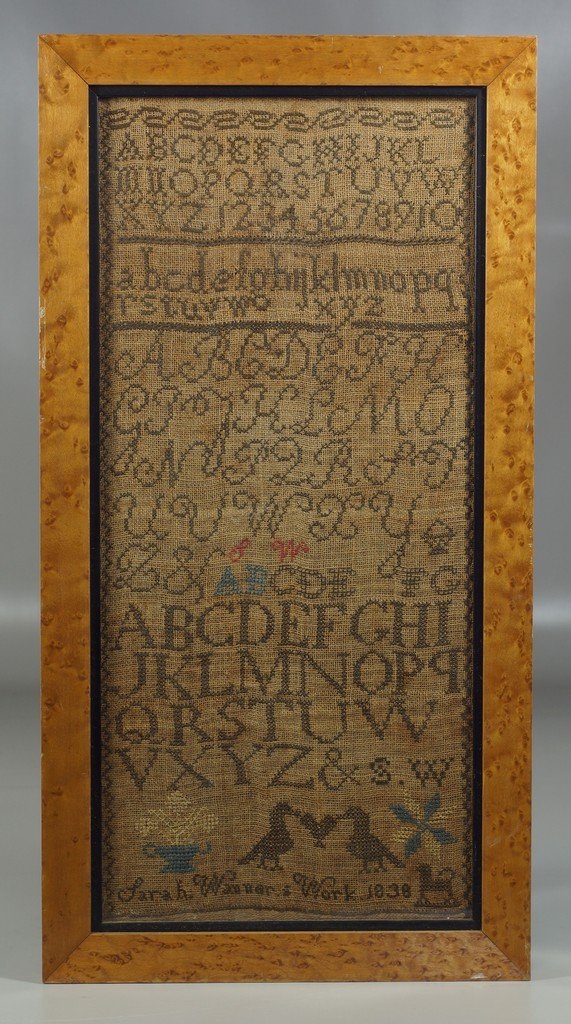 ABCDEFGHIJKL
MNOPQRSTUVW
XYZ 12345678910
abcdefghijklmnopq
rstuvw xyz
ABCDEFH
GIJKLMO
NPQRST
UVWXY
S W
Z&
ABCDE FG
ABCDEFGHI
JKLMNOPq
QRSTUVV
VXYZ&S.W
Sarah Wanner s Work 1838